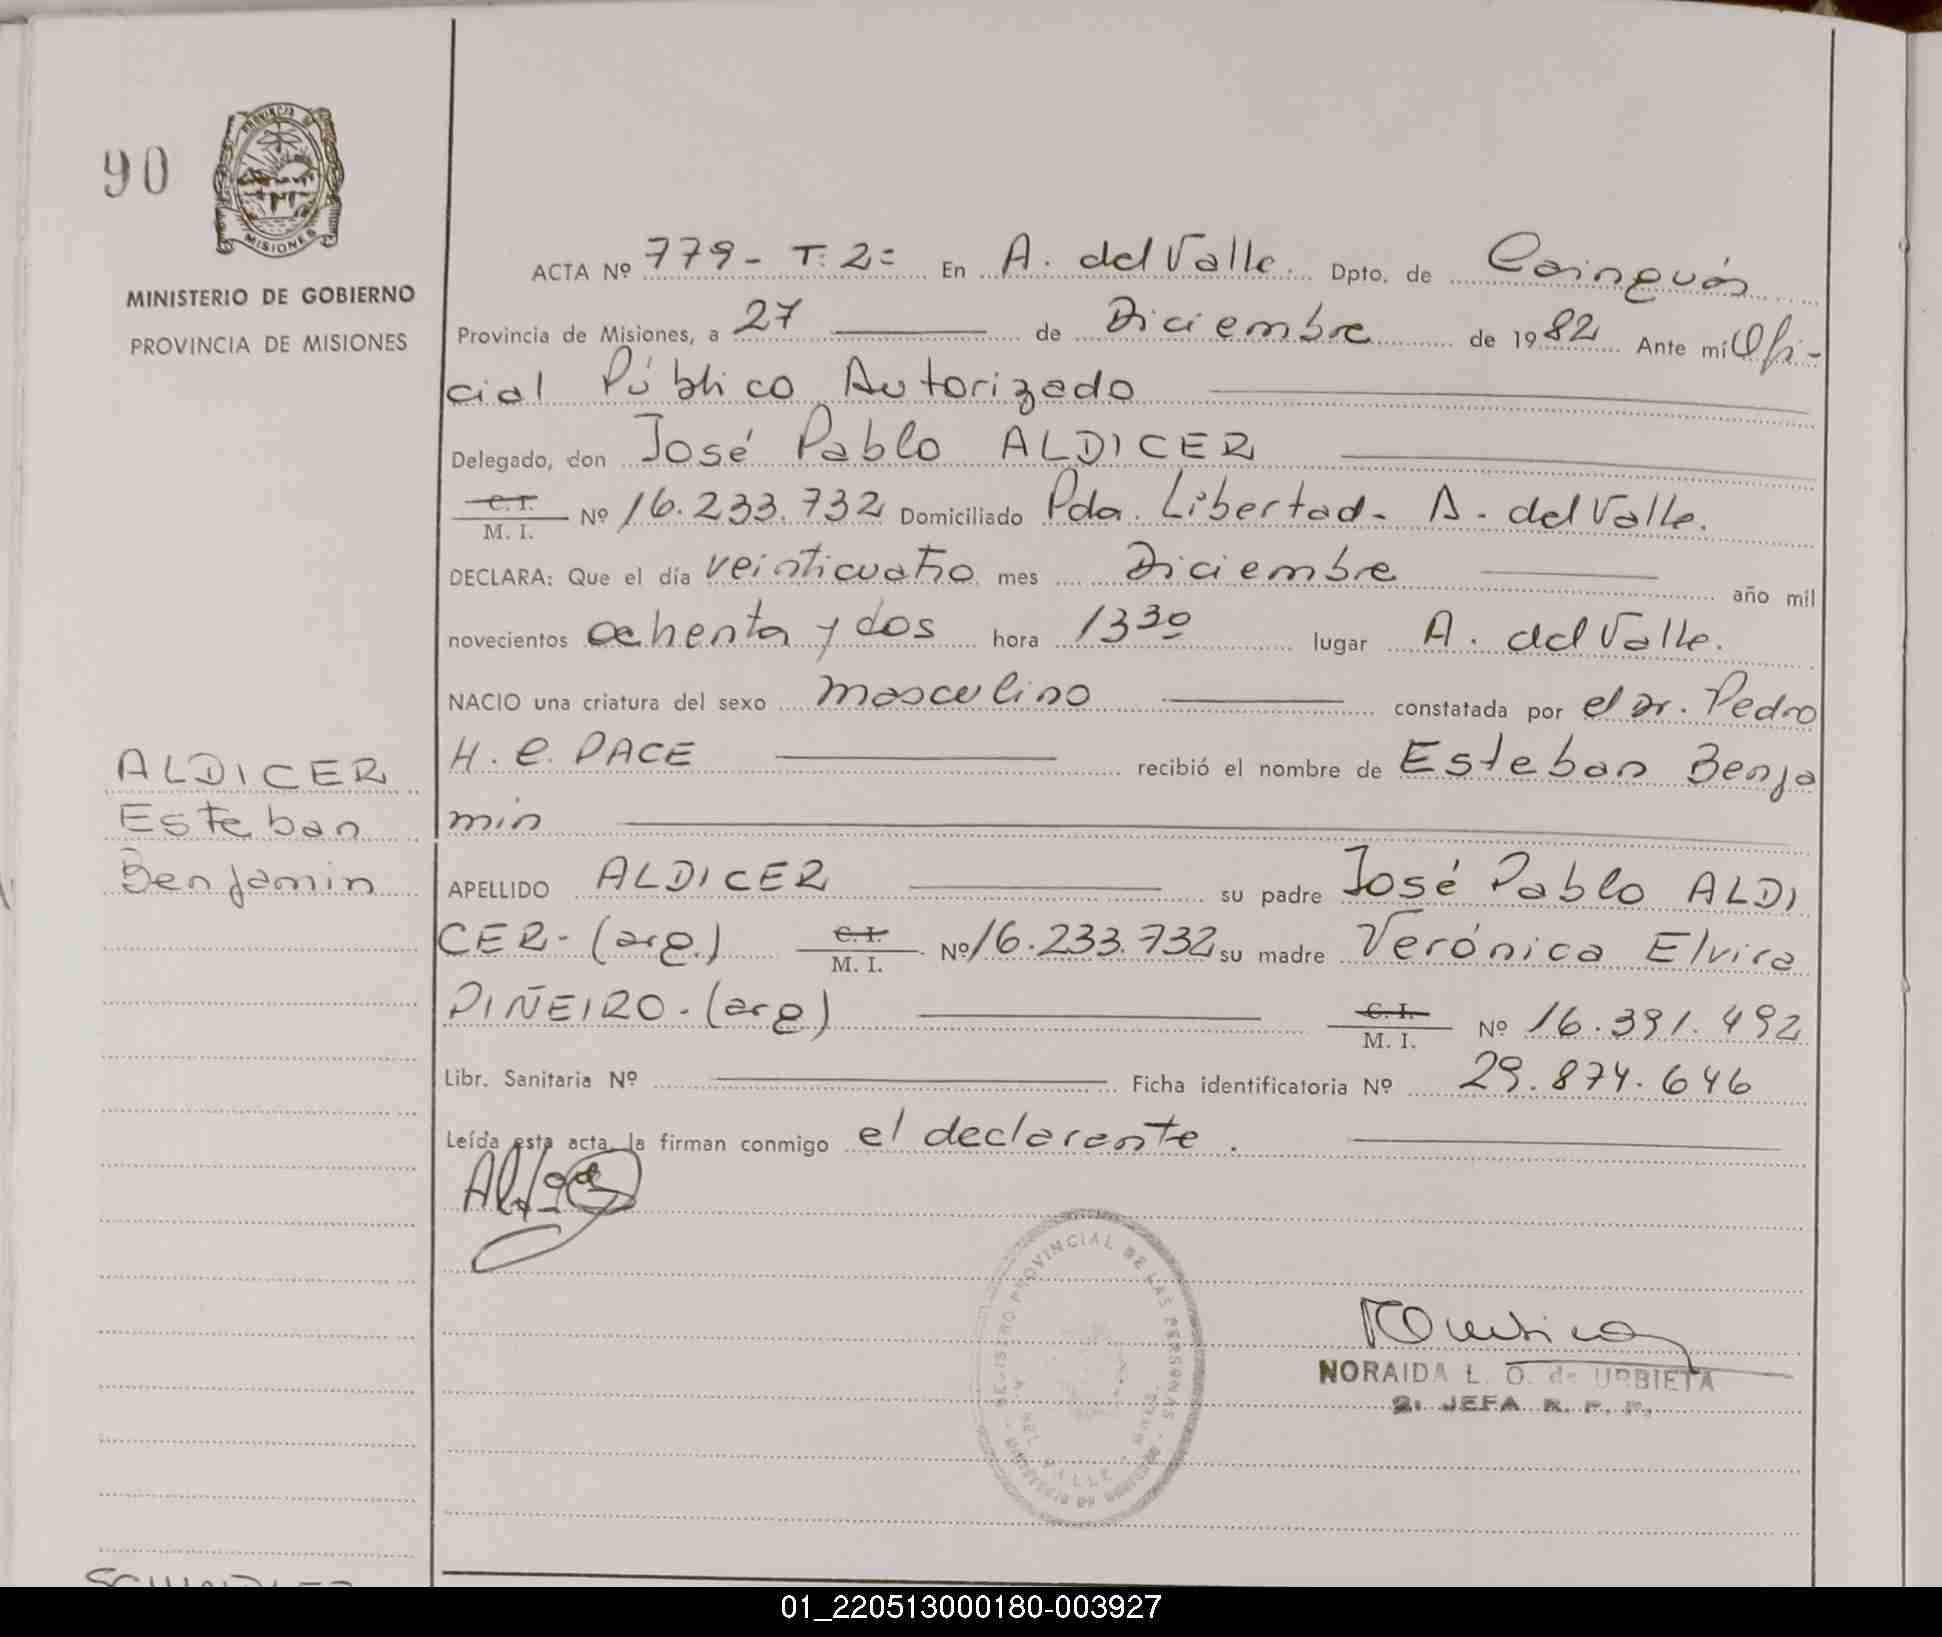 90
PROVINCIA DE
MISIONES
MINISTERIO DE GOBIERNO
PROVINCIA DE MISIONES
ALDICER
Esteban
Benjamin
ACTA Nº 779 - T: 2= En A. del Valle. Dpto. de Cainguás
Provincia de Misiones, a 27 de Diciembre de 1982 Ante mí Ofi-
cial Público Autorizado
Delegado, don José Pablo ALDICER
C. I. M. I. Nº 16.233.732 Domiciliado Pda. Libertad - A. del Valle.
DECLARA: Que el día veinticuatro mes Diciembre año mil
novecientos ochenta y dos hora 13 30 lugar A. del Valle.
NACIO una criatura del sexo masculino constatada por el Dr. Pedro
H. C. PACE recibió el nombre de Esteban Benja
min
APELLIDO ALDICER su padre José Pablo ALDI
CER - (arg.) C. I. M. I. Nº 16.233.732 su madre Verónica Elvira
PIÑEIRO - (arg) C. I. M. I. Nº 16.391.492
Libr. Sanitaria Nº Ficha identificatoria Nº 29.874.646
Leída esta acta, la firman conmigo el declarante.
REGISTRO PROVINCIAL DE LAS PERSONAS
DEL VALLE
NORAIDA L. O. de URBIETA
2: JEFA R. P. P.
01_220513000180-003927